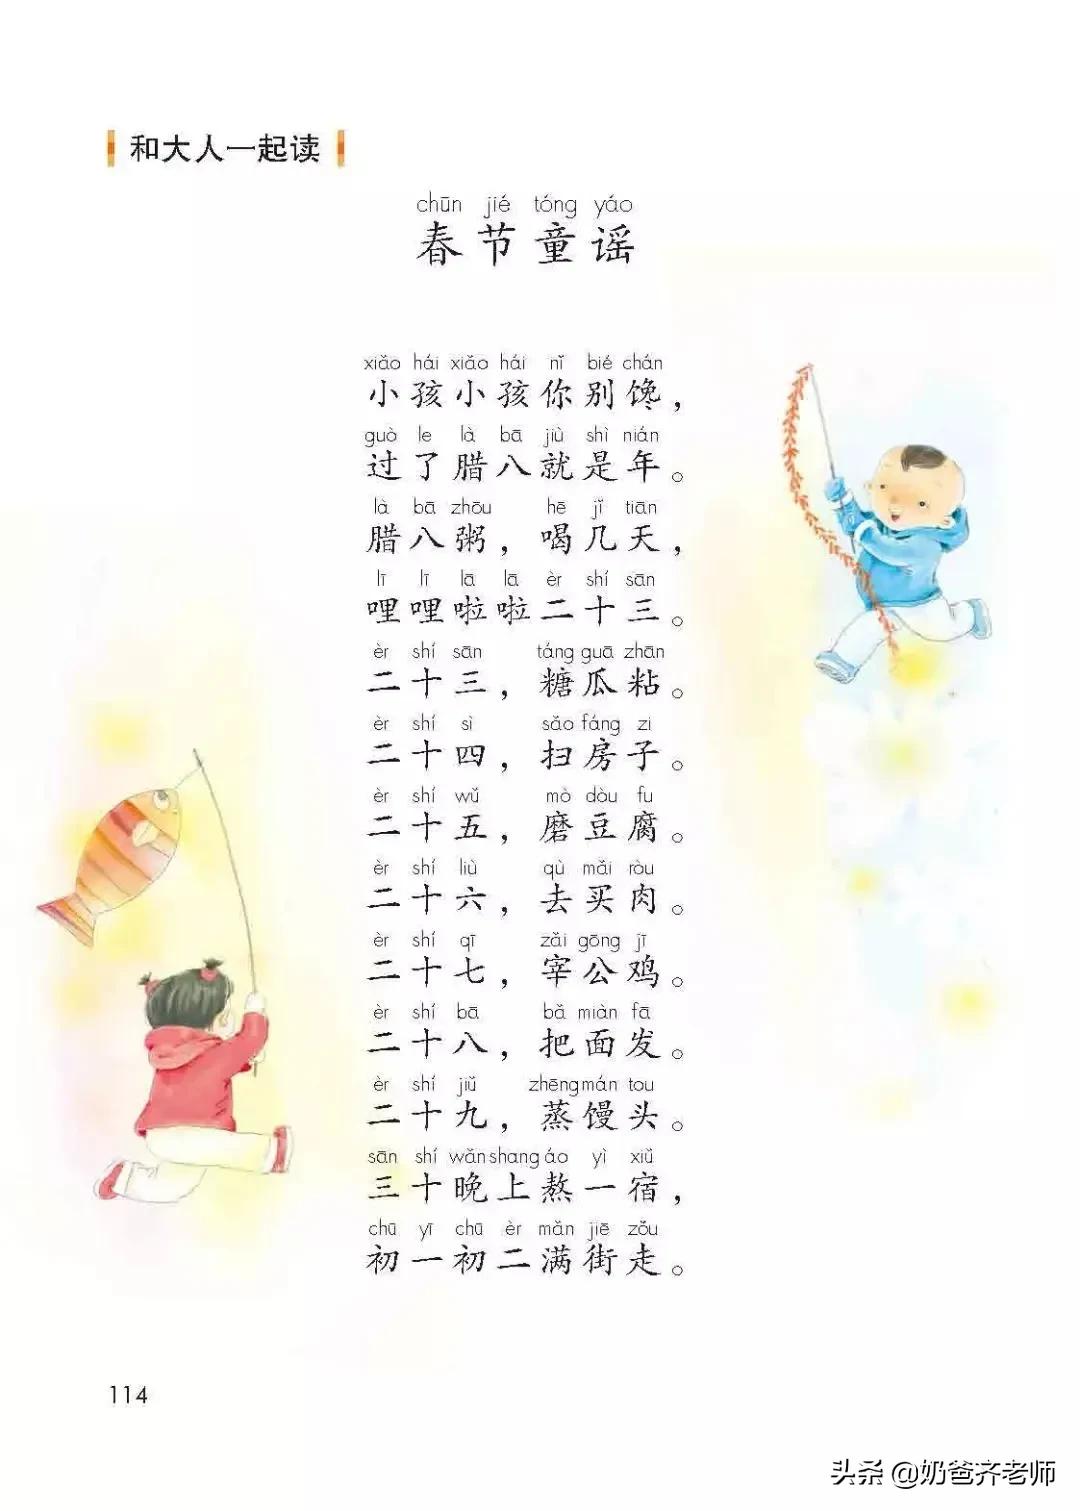 和大人一起读
chūn jié tóng yáo
春节童谣
xiǎo hái xiǎo hái nǐ bié chán
小孩小孩你别馋，
guò le là bā jiù shì nián
过了腊八就是年。
là bā zhōu hē jǐ tiān
腊八粥，喝几天，
lī lī lā lā èr shí sān
哩哩啦啦二十三。
èr shí sān táng guā zhān
二十三，糖瓜粘。
èr shí sì sǎo fáng zi
二十四，扫房子。
èr shí wǔ mò dòu fu
二十五，磨豆腐。
èr shí liù qù mǎi ròu
二十六，去买肉。
èr shí qī zǎi gōng jī
二十七，宰公鸡。
èr shí bā bǎ miàn fā
二十八，把面发。
èr shí jiǔ zhēng mán tou
二十九，蒸馒头。
sān shí wǎn shang áo yì xiǔ
三十晚上熬一宿，
chū yī chū èr mǎn jiē zǒu
初一初二满街走。
114
头条 @奶爸齐老师